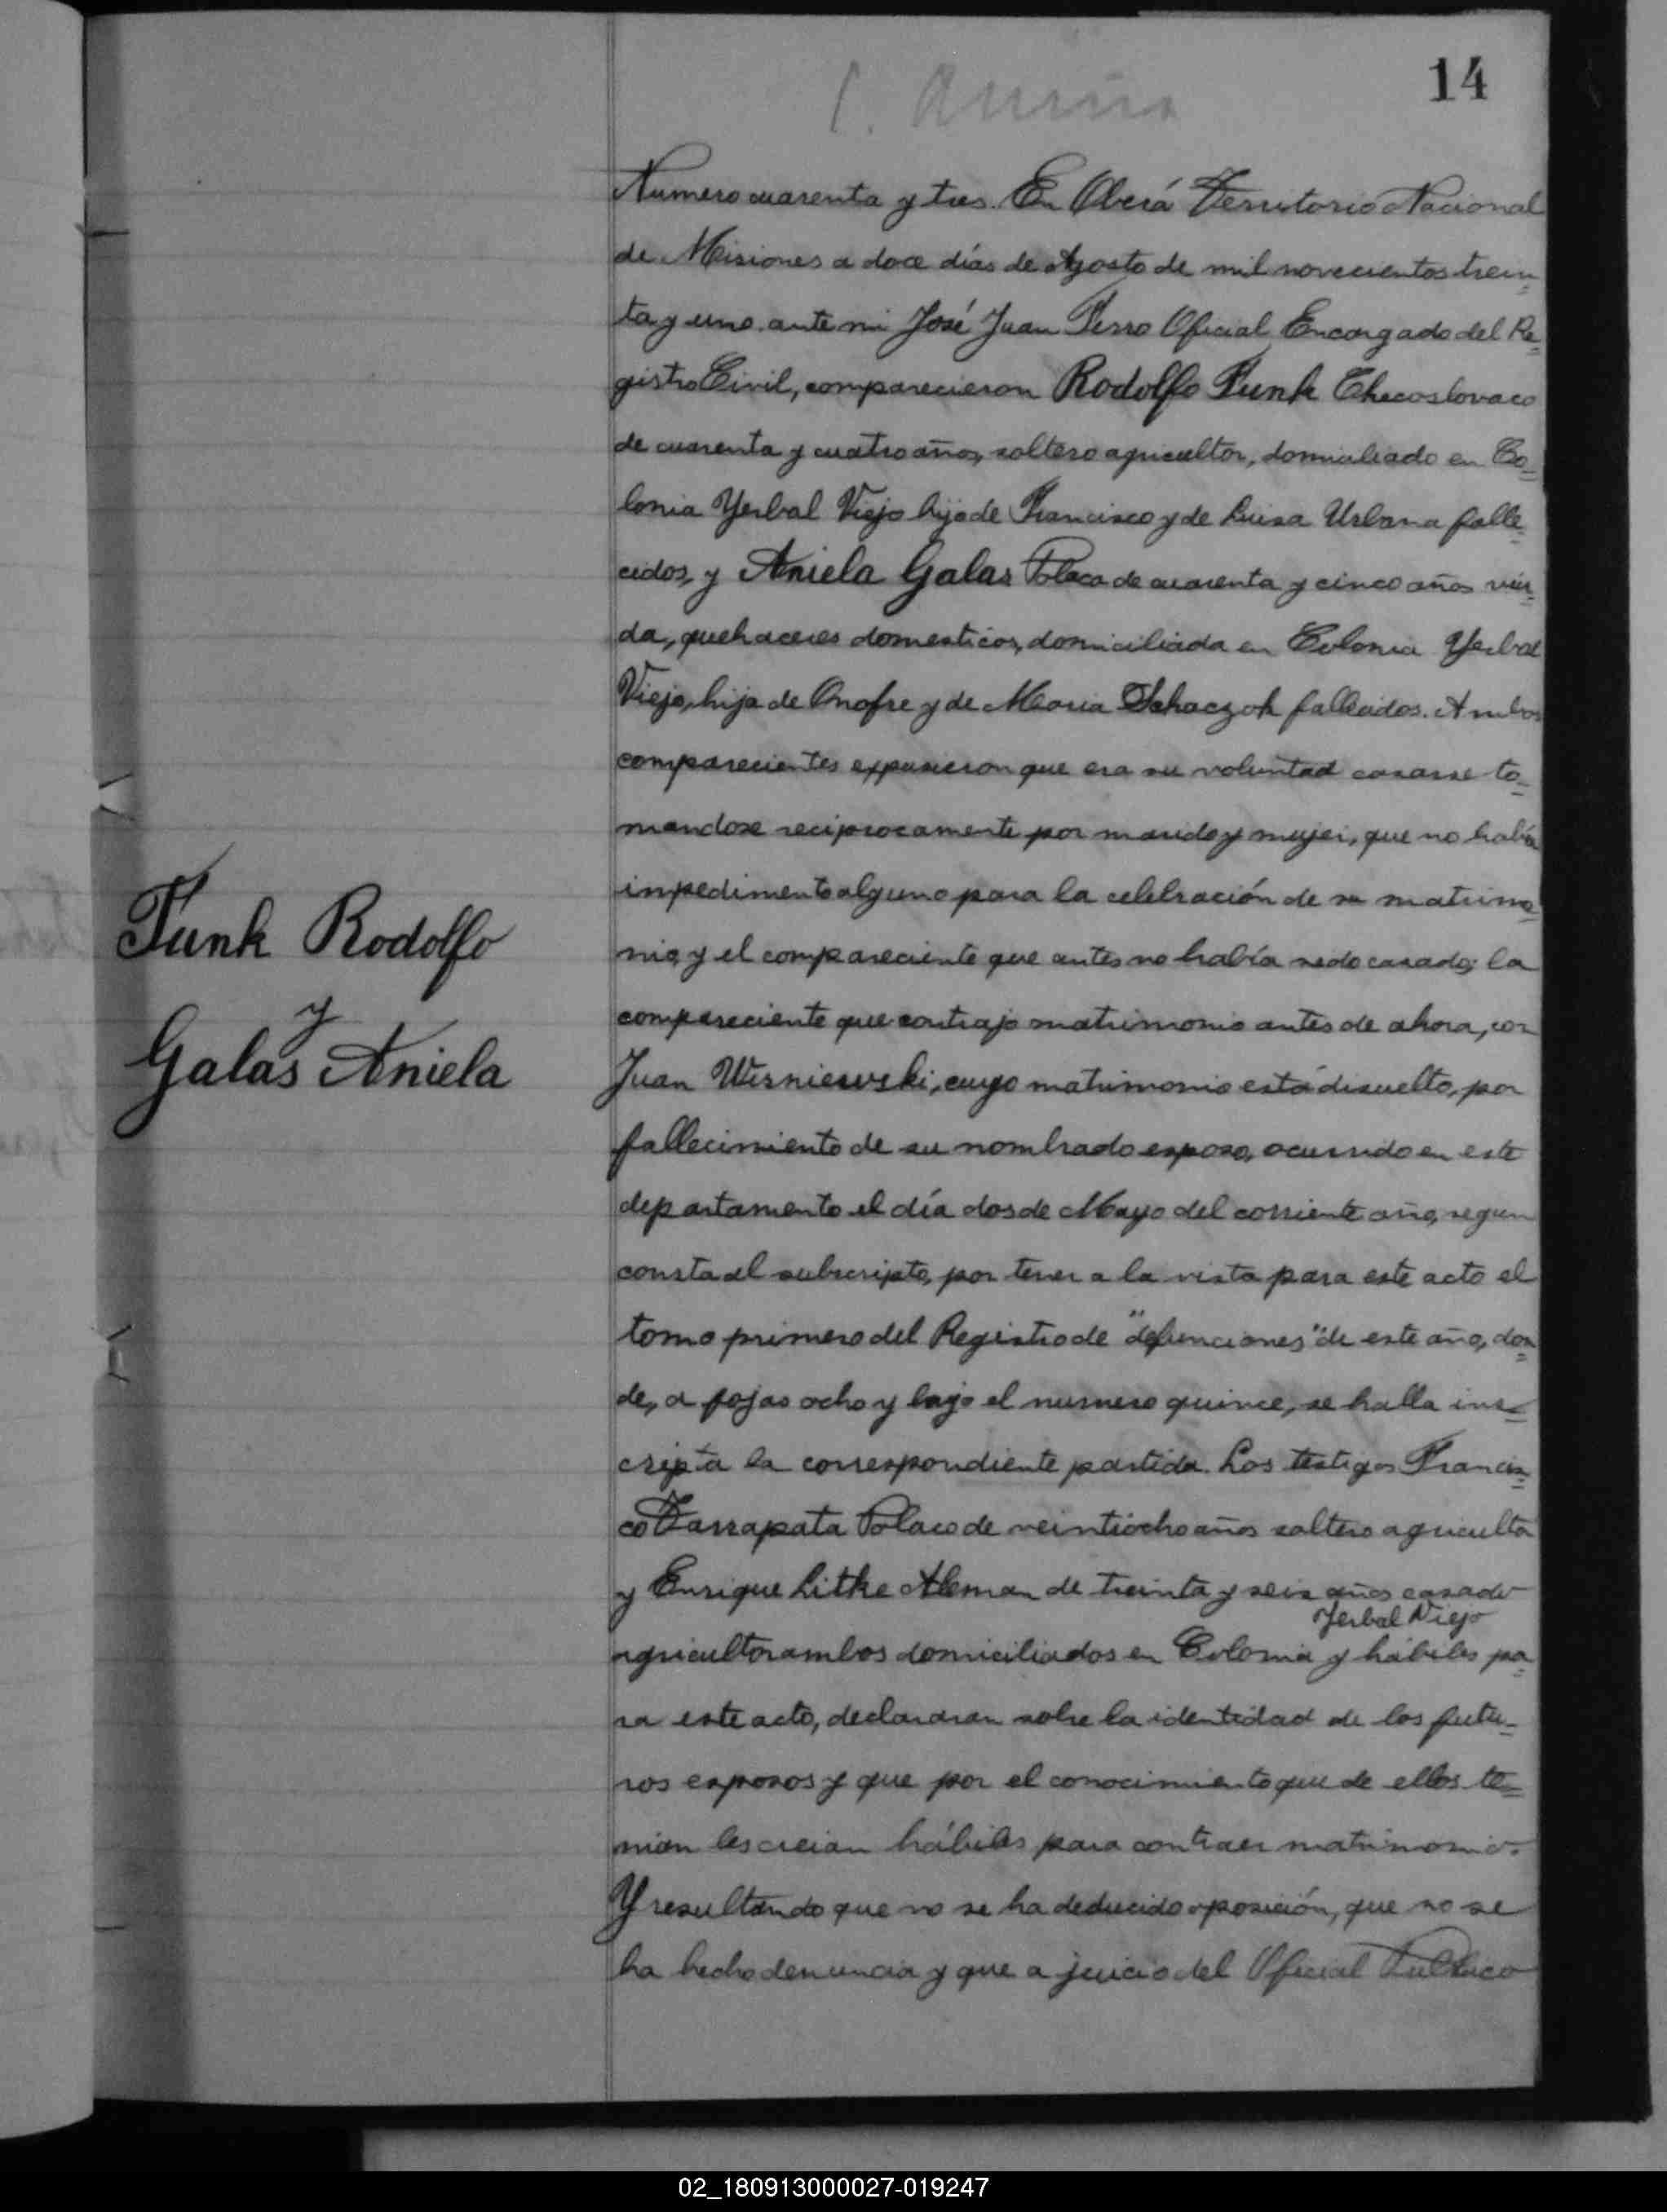 14
Numero cuarenta y tres. En Oberá Territorio Nacional
de Misiones a doce días de Agosto de mil novecientos trein=
ta y uno. ante mi José Juan Perro Oficial Encargado del Re=
gistro Civil, comparecieron Rodolfo Funk Checoslovaco
de cuarenta y cuatro años, soltero agricultor, domiciliado en Co=
lonia Yerbal Viejo hijo de Francisco y de Luisa Urbana falle=
cidos, y Aniela Galas Polaca de cuarenta y cinco años viu=
da, quehaceres domesticos, domiciliada en Colonia Yerbal
Viejo, hija de Onofre y de Maria Schaczok fallecidos. Ambos
comparecientes expusieron que era su voluntad casarse to=
mandose reciprocamente por marido y mujer, que no había
impedimento alguno para la celebración de su matrimo=
nio, y el compareciente que antes no había sido casado; la
compareciente que contrajo matrimonio antes de ahora, con
Juan Wisniewski, cuyo matrimonio está disuelto, por
fallecimiento de su nombrado esposo, ocurrido en este
departamento el día dos de Mayo del corriente año, segun
consta al subscripto, por tener a la vista para este acto el
tomo primero del Registro de "defunciones" de este año, don=
de, a fojas ocho y bajo el numero quince, se halla ins=
cripta la correspondiente partida. Los testigos Francis=
co Zarrapata Polaco de veintiocho años soltero agricultor
y Enrique Litke Aleman de treinta y seis años casado
Yerbal Viejo
agricultor ambos domiciliados en Colonia y hábiles pa=
ra este acto, declararan sobre la identidad de los futu=
ros esposos y que por el conocimiento que de ellos te=
nian les creian hábiles para contraer matrimonio.
Y resultando que no se ha deducido oposición, que no se
ha hecho denuncia y que a juicio del Oficial Publico
Funk Rodolfo
y
Galas Aniela
02_180913000027-019247